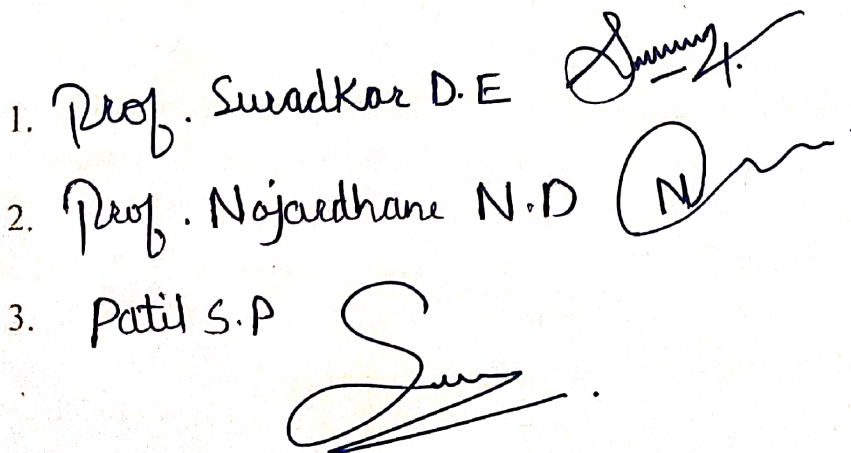 1. Prof. Suradkar D.E
2. Prof. Najardhane N.D
3. Patil S.P